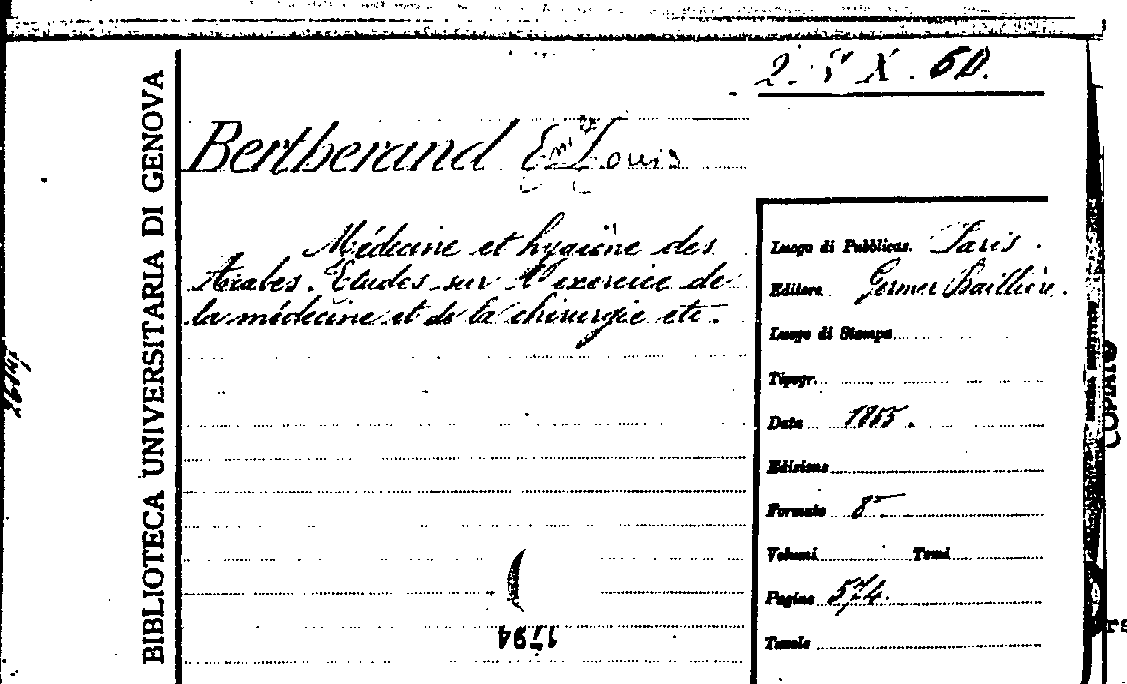 BIBLIOTECA UNIVERSITARIA DI GENOVA
Bertherand Em.le Louis
Médecine et hygiène des
Arabes. Etudes sur l'exercice de
la médecine et de la chirurgie etc.
1794
Luogo di Pubblicaz. Paris.
Editore Germer Baillière.
Luogo di Stampa
Tipogr.
Data 1855.
Edizione
Formato 8°
Volumi Tomi
Pagine 574.
Tavole
COPIATO